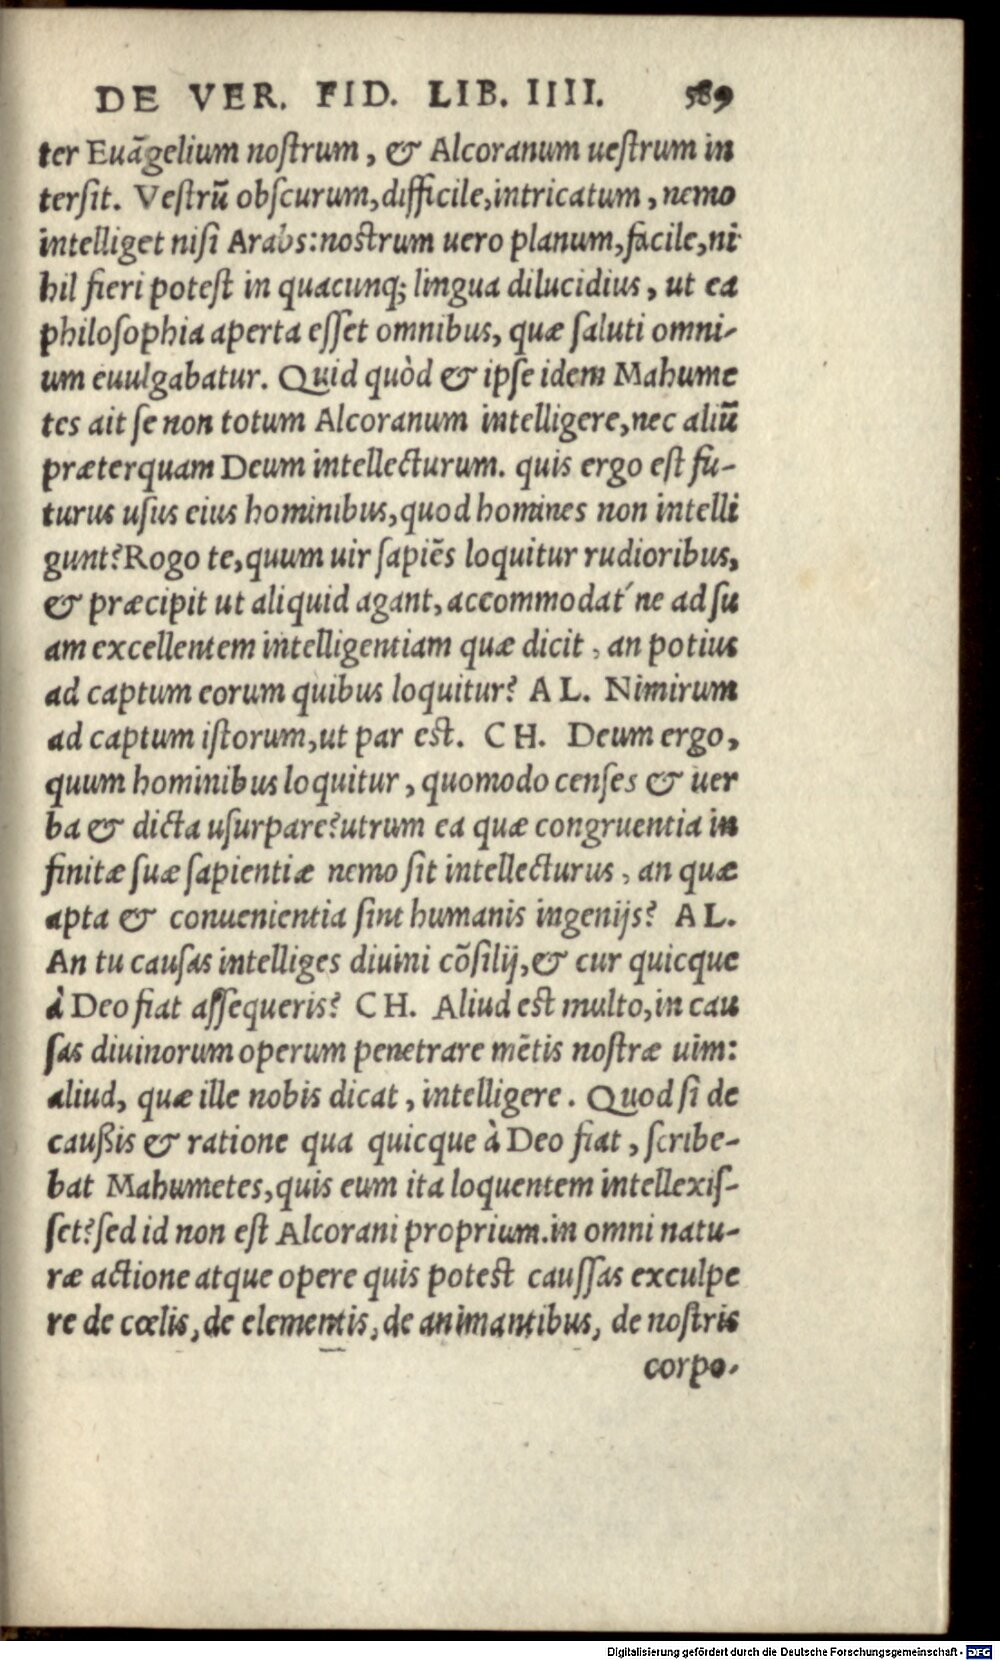 DE VER. FID. LIB. IIII. 589
ter Euãgelium nostrum, & Alcoranum uestrum in
tersit. Vestrũ obscurum, difficile, intricatum, nemo
intelliget nisi Arabs: nostrum uero planum, facile, ni
hil fieri potest in quacunq; lingua dilucidius, ut ea
philosophia aperta esset omnibus, quæ saluti omni-
um euulgabatur. Quid quòd & ipse idem Mahume
tes ait se non totum Alcoranum intelligere, nec aliũ
præterquam Deum intellecturum. quis ergo est fu-
turus usus eius hominibus, quod homines non intelli
gunt? Rogo te, quum uir sapiẽs loquitur rudioribus,
& præcipit ut aliquid agant, accommodat́ ne ad su
am excellentem intelligentiam quæ dicit, an potius
ad captum eorum quibus loquitur? AL. Nimirum
ad captum istorum, ut par est. CH. Deum ergo,
quum hominibus loquitur, quomodo censes & uer
ba & dicta usurpare? utrum ea quæ congruentia in
finitæ suæ sapientiæ nemo sit intellecturus, an quæ
apta & conuenientia sint humanis ingenijs? AL.
An tu causas intelliges diuini cõsilij, & cur quicque
à Deo fiat assequeris? CH. Aliud est multo, in cau
sas diuinorum operum penetrare mẽtis nostræ uim:
aliud, quæ ille nobis dicat, intelligere. Quod si de
caußis & ratione qua quicque à Deo fiat, scribe-
bat Mahumetes, quis eum ita loquentem intellexis-
set? sed id non est Alcorani proprium. in omni natu-
ræ actione atque opere quis potest caussas exculpe
re de cœlis, de elementis, de animantibus, de nostris
corpo-
Digitalisierung gefördert durch die Deutsche Forschungsgemeinschaft - DFG